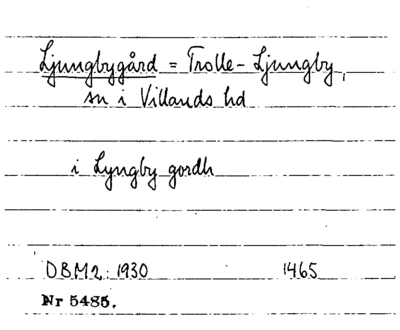 Ljungbygård = Trolle-Ljungby,
sn i Villands hd
i Lyngby gordh
DBM2: 1930 1465
Nr 5485.